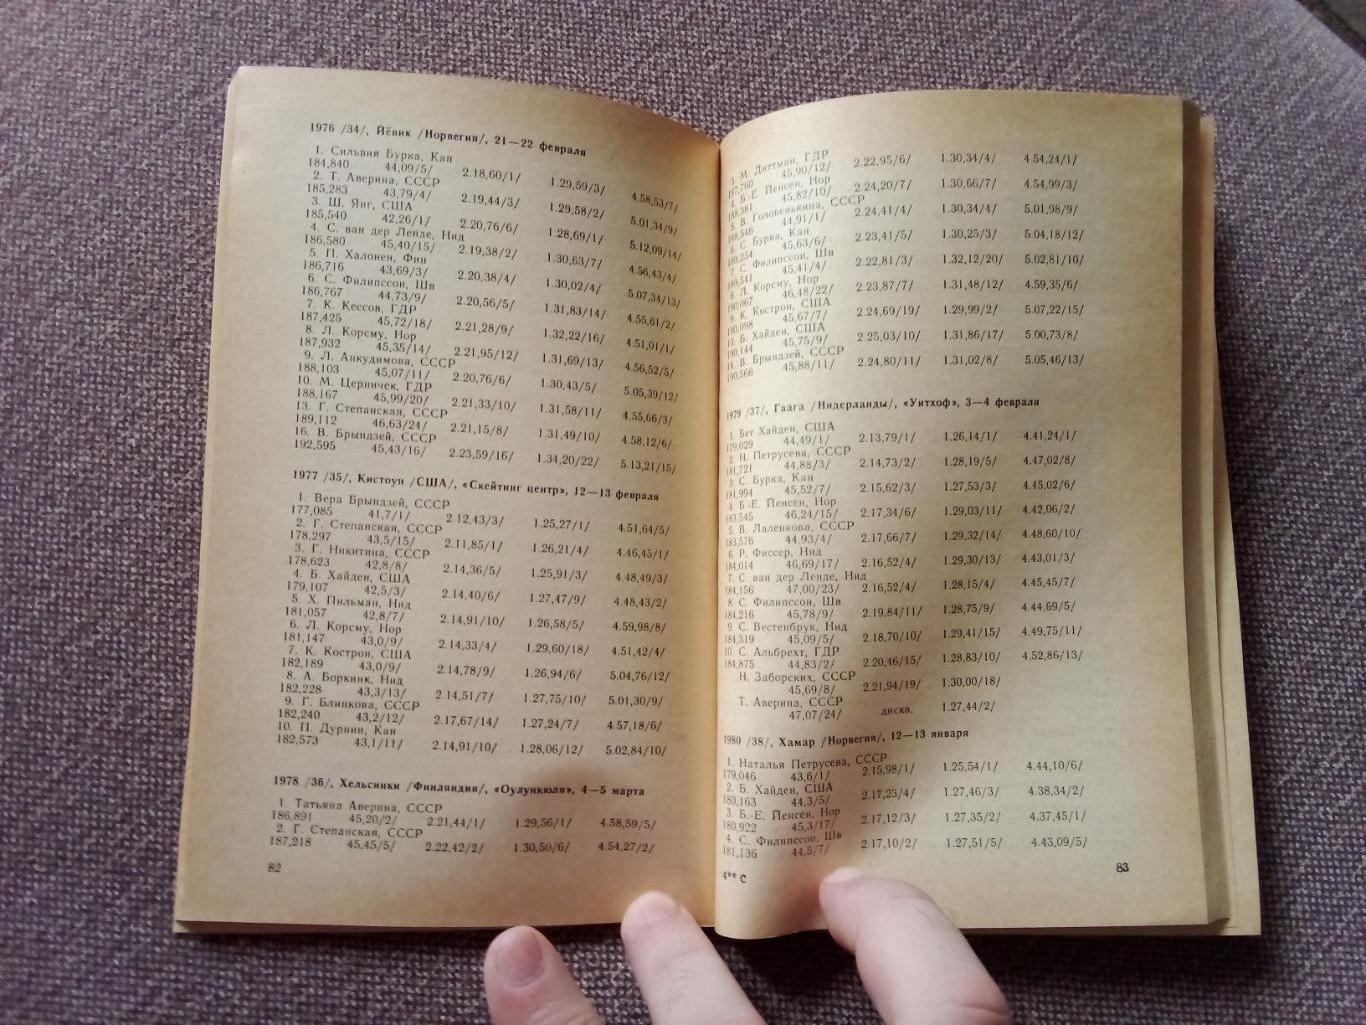 1976 /34/, Йёвик /Норвегия/, 21—22 февраля
1. Сильвия Бурка, Кан
184,840 44,09/5/ 2.18,60/1/ 1.29,59/3/ 4.58,53/7/
2. Т. Аверина, СССР
185,283 43,79/4/ 2.19,44/3/ 1.29,58/2/ 5.01,34/9/
3. Ш. Янг, США
185,540 42,26/1/ 2.20,76/6/ 1.28,69/1/ 5.12,09/14/
4. С. ван дер Ленде, Нид
186,580 45,40/15/ 2.19,38/2/ 1.30,63/7/ 4.56,43/4/
5. П. Халонен, Фин
186,716 43,69/3/ 2.20,38/4/ 1.30,02/4/ 5.07,34/13/
6. С. Филипссон, Шв
186,767 44,73/9/ 2.20,56/5/ 1.31,83/14/ 4.55,61/2/
7. К. Кессов, ГДР
187,425 45,72/18/ 2.21,28/9/ 1.32,22/16/ 4.51,01/1/
8. Л. Корсму, Нор
187,932 45,35/14/ 2.21,95/12/ 1.31,69/13/ 4.56,52/5/
9. Л. Анкудимова, СССР
188,103 45,07/11/ 2.20,76/6/ 1.30,43/5/ 5.05,39/12/
10. М. Церничек, ГДР
188,167 45,99/20/ 2.21,33/10/ 1.31,58/11/ 4.55,66/3/
13. Г. Степанская, СССР
189,112 46,63/24/ 2.21,15/8/ 1.31,49/10/ 4.58,12/6/
16. В. Брындзей, СССР
192,595 45,43/16/ 2.23,59/16/ 1.34,20/22/ 5.13,21/15/
1977 /35/, Кистоун /США/, «Скейтинг центр», 12—13 февраля
1. Вера Брындзей, СССР
177,085 41,7/1/ 2.12,43/3/ 1.25,27/1/ 4.51,64/5/
2. Г. Степанская, СССР
178,297 43,5/15/ 2.11,85/1/ 1.26,21/4/ 4.46,45/1/
3. Г. Никитина, СССР
178,623 42,8/8/ 2.14,36/5/ 1.25,91/3/ 4.48,49/3/
4. Б. Хайден, США
179,107 42,5/3/ 2.14,40/6/ 1.27,47/9/ 4.48,43/2/
5. Х. Пильман, Нид
181,057 42,8/7/ 2.14,91/10/ 1.26,58/5/ 4.59,98/8/
6. Л. Корсму, Нор
181,147 43,0/9/ 2.14,33/4/ 1.29,60/18/ 4.51,42/4/
7. К. Кострон, США
182,189 43,0/9/ 2.14,78/9/ 1.26,94/6/ 5.04,76/12/
8. А. Боркинк, Нид
182,228 43,3/13/ 2.14,51/7/ 1.27,75/10/ 5.01,30/9/
9. Г. Блинкова, СССР
182,240 43,2/12/ 2.17,67/14/ 1.27,24/7/ 4.57,18/6/
10. П. Дурнин, Кан
182,573 43,1/11/ 2.14,91/10/ 1.28,06/12/ 5.02,84/10/
1978 /36/, Хельсинки /Финляндия/, «Оулункюля», 4—5 марта
1. Татьяна Аверина, СССР
186,891 45,20/2/ 2.21,44/1/ 1.29,56/1/ 4.58,59/5/
2. Г. Степанская, СССР
187,218 45,45/5/ 2.22,42/2/ 1.30,50/6/ 4.54,27/2/
82
3. М. Диттман, ГДР
187,760 45,90/12/ 2.22,95/6/ 1.30,34/4/ 4.54,24/1/
4. Б.-Е. Йенсен, Нор
188,381 45,82/10/ 2.24,20/7/ 1.30,66/7/ 4.54,99/3/
5. В. Головенькина, СССР
188,546 44,91/1/ 2.24,41/4/ 1.30,34/4/ 5.01,98/9/
6. С. Бурка, Кан
189,254 45,63/6/ 2.23,41/5/ 1.30,25/3/ 5.04,18/12/
7. С. Филипссон, Шв
189,541 45,41/4/ 2.22,81/3/ 1.32,12/20/ 5.02,81/10/
8. Л. Корсму, Нор
190,067 46,48/22/ 2.23,87/7/ 1.31,48/12/ 4.59,35/6/
9. К. Кострон, США
190,098 45,67/7/ 2.24,69/19/ 1.29,99/2/ 5.07,22/15/
10. Б. Хайден, США
190,144 45,75/9/ 2.25,03/10/ 1.31,86/17/ 5.00,73/8/
11. В. Брындзей, СССР
190,566 45,88/11/ 2.24,80/11/ 1.31,02/8/ 5.05,46/13/
1979 /37/, Гаага /Нидерланды/, «Уитхоф», 3—4 февраля
1. Бет Хайден, США
179,029 44,49/1/ 2.13,79/1/ 1.26,14/1/ 4.41,24/1/
2. Н. Петрусева, СССР
181,721 44,88/3/ 2.14,73/2/ 1.28,19/5/ 4.47,02/8/
3. С. Бурка, Кан
181,994 45,52/7/ 2.15,62/3/ 1.27,53/3/ 4.45,02/6/
4. Б.-Е. Йенсен, Нор
183,545 46,24/15/ 2.17,34/6/ 1.29,03/11/ 4.42,06/2/
5. В. Лаленкова, СССР
183,576 44,93/4/ 2.17,66/7/ 1.29,32/14/ 4.48,60/10/
6. Р. Фиссер, Нид
184,014 46,69/17/ 2.16,52/4/ 1.29,30/13/ 4.43,01/3/
7. С. ван дер Ленде, Нид
184,156 47,00/23/ 2.16,52/4/ 1.28,15/4/ 4.45,45/7/
8. С. Филипссон, Шв
184,216 45,78/9/ 2.19,84/11/ 1.28,75/9/ 4.44,69/5/
9. С. Вестенбрук, Нид
184,319 45,09/5/ 2.18,70/10/ 1.29,41/15/ 4.49,75/11/
10. С. Альбрехт, ГДР
184,875 44,83/2/ 2.20,46/15/ 1.28,83/10/ 4.52,86/13/
Н. Заборских, СССР
45,69/8/ 2.21,94/19/ 1.30,00/18/
Т. Аверина, СССР
47,07/24/ дискв. 1.27,44/2/
1980 /38/, Хамар /Норвегия/, 12—13 января
1. Наталья Петрусева, СССР
179,046 43,6/1/ 2.15,98/1/ 1.25,54/1/ 4.44,10/6/
2. Б. Хайден, США
180,163 44,3/5/ 2.17,23/4/ 1.27,46/3/ 4.38,34/2/
3. Б.-Е. Йенсен, Нор
180,922 45,3/17/ 2.17,12/3/ 1.27,35/2/ 4.37,45/1/
4. С. Филипссон, Шв
181,136 44,5/7/ 2.17,10/2/ 1.27,51/5/ 4.43,09/5/
4** С
83